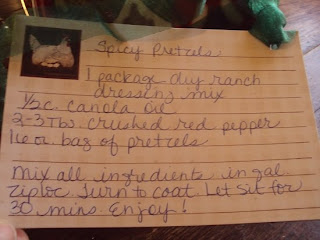 Spicy Pretzels
1 package dry ranch
dressing mix
1/2 c. canola oil
2-3 Tbs. crushed red pepper
16 oz bag of pretzels
Mix all ingredients in gal.
ziploc. Turn to coat. Let sit for
30 mins. Enjoy!